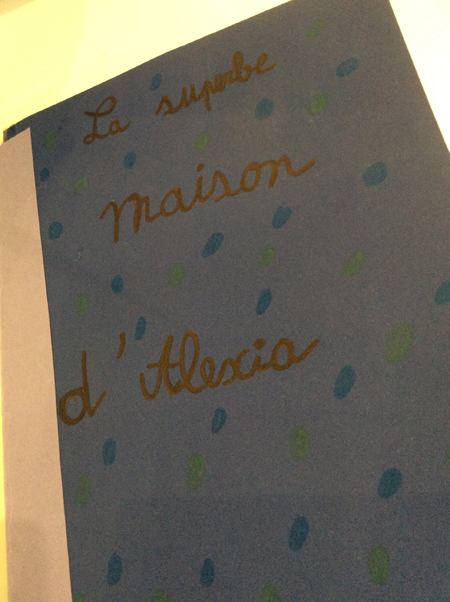 La superbe
maison
d'Alexia